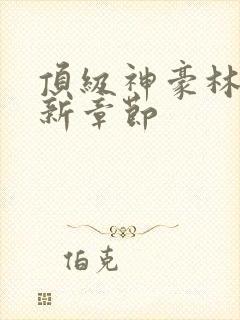 頂級神豪林
新章節
伯克